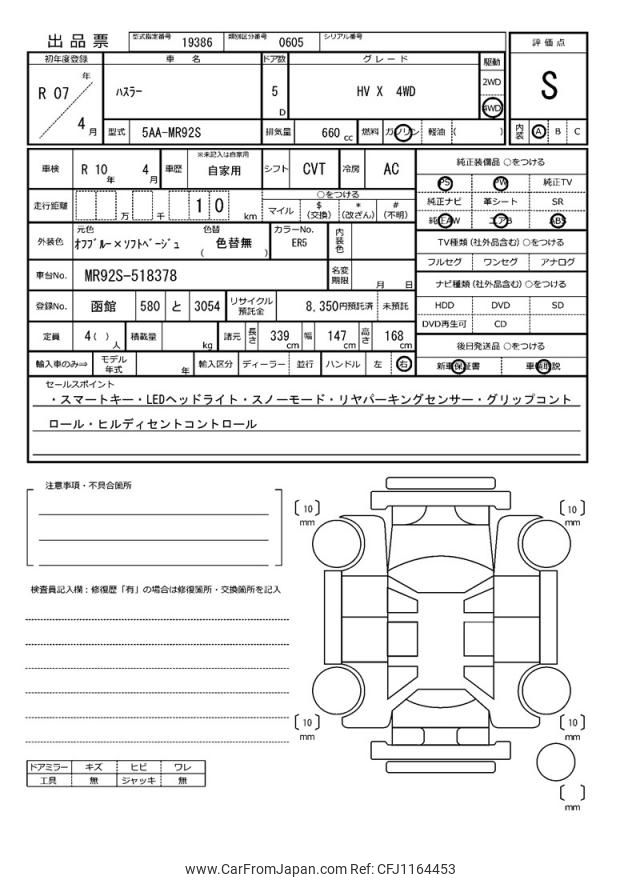 出品票 型式指定番号 19386 類別区分番号 0605 シリアル番号
評価点
初年度登録 車名 ドア数 グレード 駆動
R 07 年 4 月
ハスラー 5 D HV X 4WD
2WD
4WD
S
型式 5AA-MR92S 排気量 660 cc 燃料 ガソリン 軽油 ( )
内装 A B C
車検 R 10 年 4 月 車歴 ※未記入は自家用 自家用 シフト CVT 冷房 AC
純正装備品 ○をつける
PS PW 純正TV
純正ナビ 革シート SR
純正AW エアB ABS
走行距離 万 千 1 0 km
○をつける
マイル $ (交換) * (改ざん) # (不明)
外装色 元色 オフブルー×ソフトベージュ 色替 ( 色替無 ) カラーNo. ER5 内装色
TV種類 (社外品含む) ○をつける
フルセグ ワンセグ アナログ
車台No. MR92S-518378 名変期限 月 日
ナビ種類 (社外品含む) ○をつける
HDD DVD SD
DVD再生可 CD
登録No. 函館 580 と 3054 リサイクル預託金 8,350円預託済 未預託
定員 4( ) 人 積載量 kg 諸元 長さ 339 cm 幅 147 cm 高さ 168 cm
後日発送品 ○をつける
新車保証書
輸入車のみ⇒ モデル年式 年 輸入区分 ディーラー 並行 ハンドル 左 右
セールスポイント
・スマートキー・LEDヘッドライト・スノーモード・リヤパーキングセンサー・グリップコント
ロール・ヒルディセントコントロール
注意事項・不具合箇所
検査員記入欄：修復歴「有」の場合は修復箇所・交換箇所を記入
〔10〕 mm
〔10〕 mm
〔10〕 mm
〔10〕 mm
〔 〕 mm
ドアミラー キズ ヒビ ワレ
工具 無 ジャッキ 無
www.CarFromJapan.com Ref: CFJ1164453